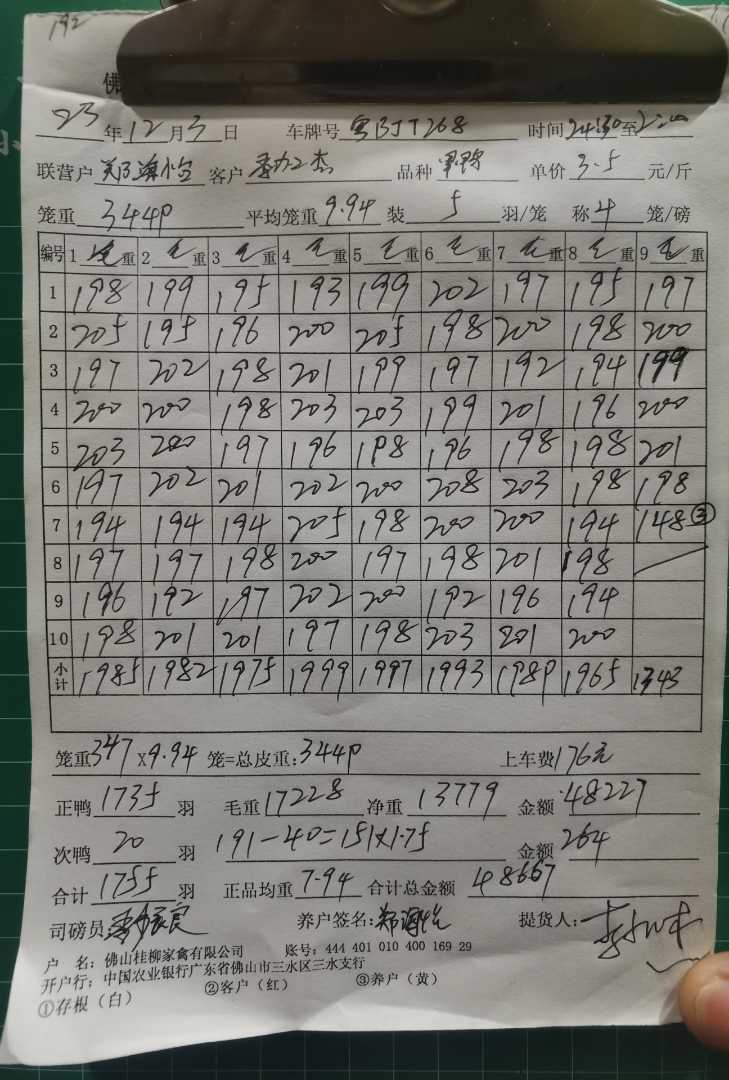 192
佛
23年12月3日 车牌号 粤BJT268 时间24:30至2:00
联营户 郑海怡 客户 品种 单价 3.5 元/斤
笼重 3449 平均笼重 9.94 装 5 羽/笼 称 4 笼/磅
编号 1 毛重 2 毛重 3 毛重 4 毛重 5 毛重 6 毛重 7 毛重 8 毛重 9 毛重
1 198 199 195 193 199 202 197 195 197
2 205 195 196 200 205 198 200 198 200
3 197 202 198 201 199 197 192 194 199
4 200 200 198 203 203 199 201 196 200
5 203 200 197 196 198 196 198 198 201
6 197 202 201 202 200 208 203 198 198
7 194 194 194 205 198 200 200 194 148③
8 197 197 198 200 197 198 201 198
9 196 192 197 202 200 192 196 194
10 198 201 201 197 198 203 201 200
小计 1985 1982 1975 1999 1997 1993 1989 1965 1343
笼重347X9.94 笼=总皮重:3449 上车费176元
正鸭 1735 羽 毛重17228 净重 13779 金额 48227
次鸭 20 羽 191-40=151x1.75 金额 264
合计 1755 羽 正品均重 7.94 合计总金额 48667
司磅员: 养户签名:郑海怡 提货人:
户 名:佛山桂柳家禽有限公司 账号:444 401 010 400 169 29
开户行:中国农业银行广东省佛山市三水区三水支行
①存根(白) ②客户(红) ③养户(黄)